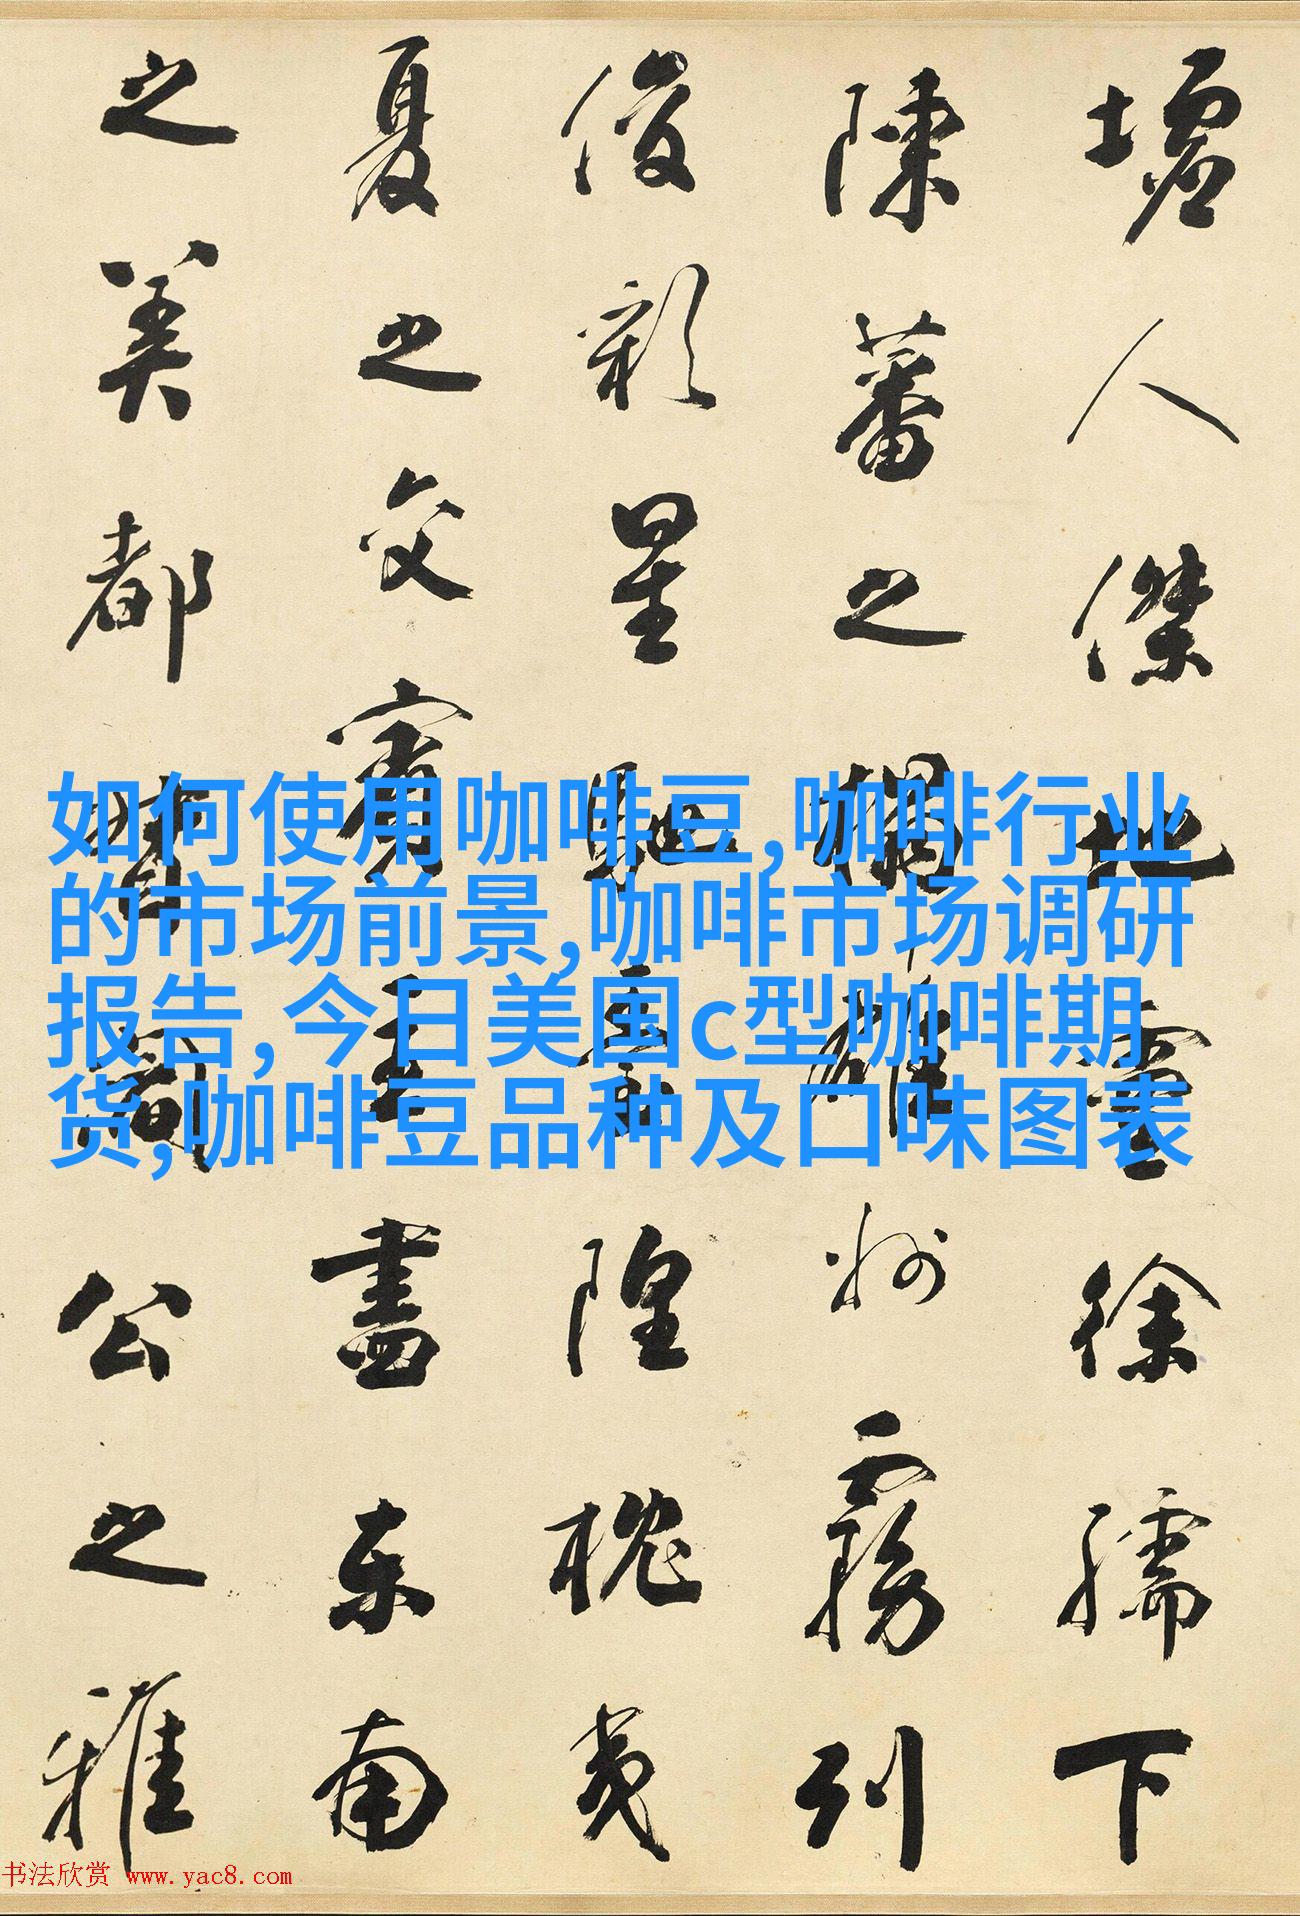 墟人傑地靈徐孺下
陳蕃之榻雄州霧列
俊彩星馳臺隍枕夷
夏之交賓主盡東南
之美都督閻公之雅
如何使用咖啡豆,咖啡行业
的市场前景,咖啡市场调研
报告,今日美国c型咖啡期
货,咖啡豆品种及口味图表
书法欣赏 www.yac8.com